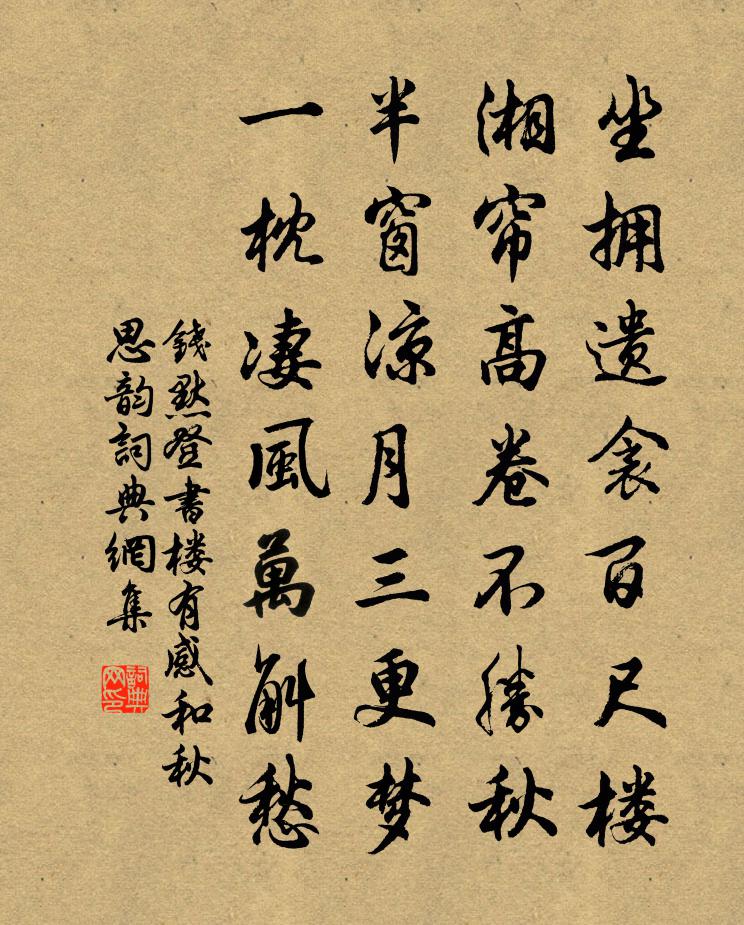 坐拥遗衾百尺楼
湘帘高卷不胜秋
半窗凉月三更梦
一枕凄風萬斛愁
錢㸃登書楼有感和秋
思韵詞典網集
詞典网印